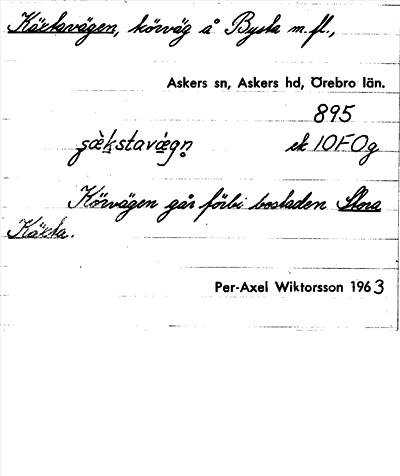 Käxstavägen, körväg å Bysta m.fl.,
Askers sn, Askers hd, Örebro län.
895
ek 10F0g
Körvägen går förbi bostaden Stora
Käxsta.
Per-Axel Wiktorsson 1963